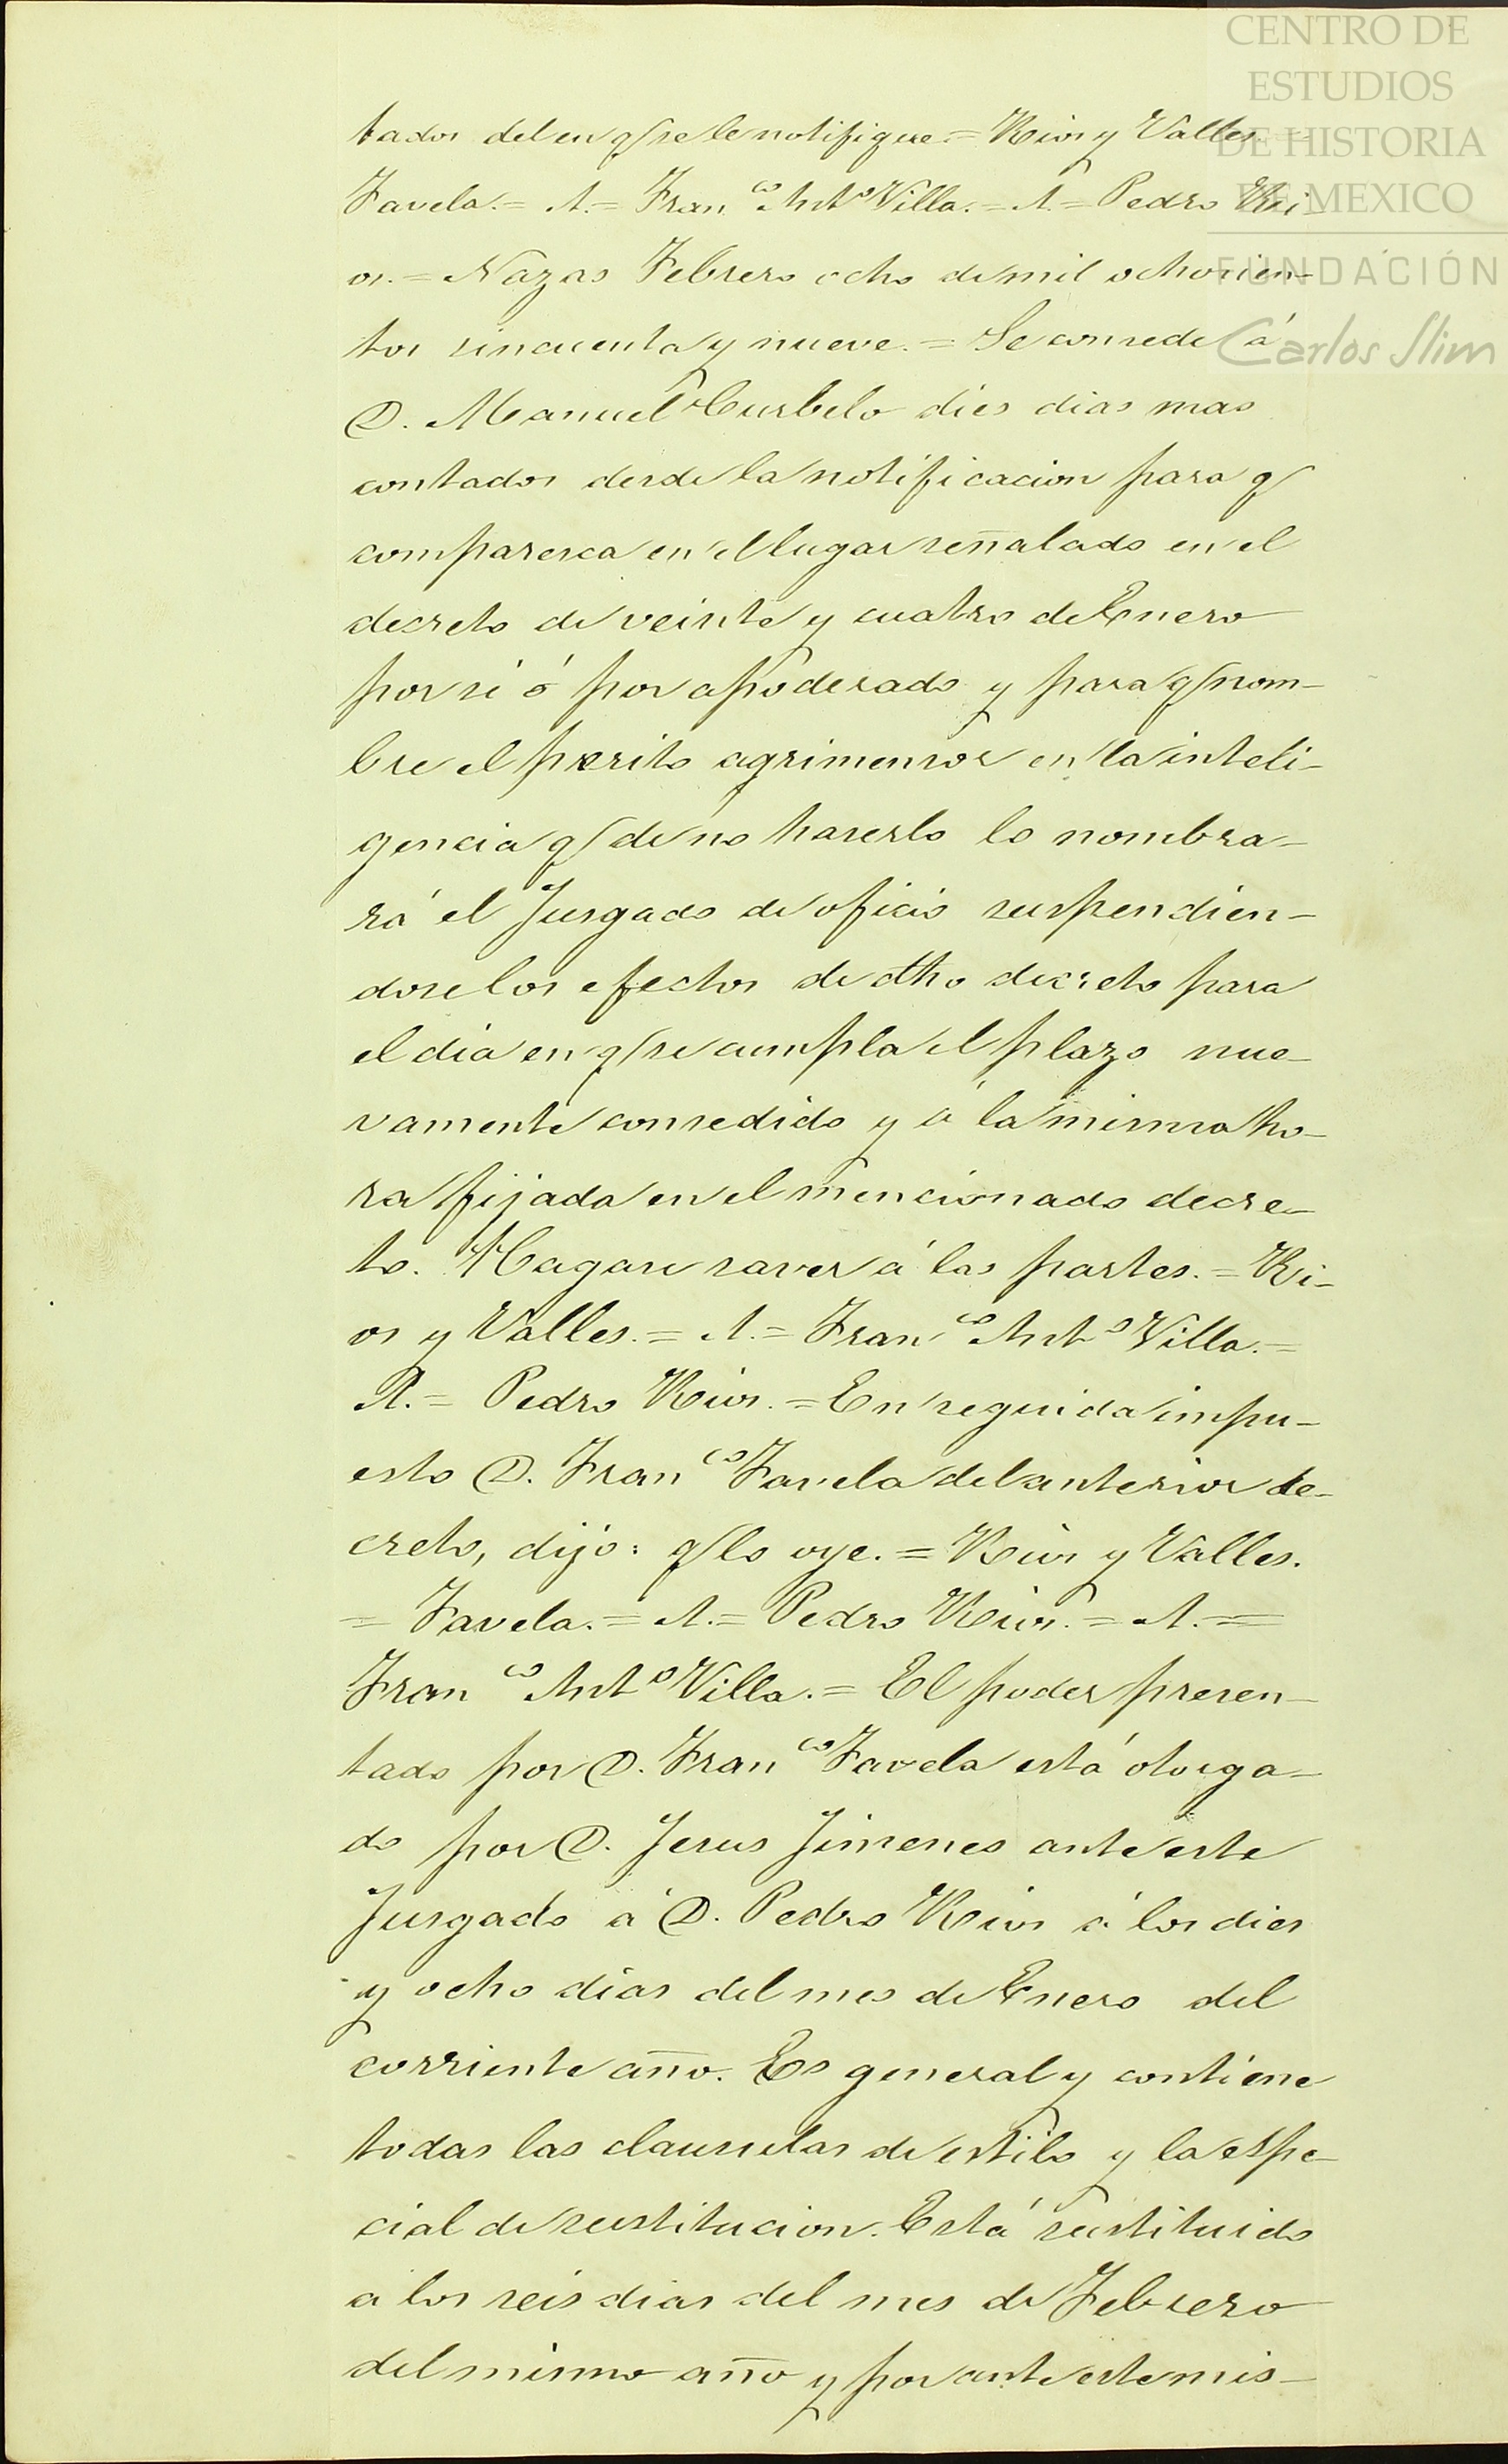 CENTRO DE
ESTUDIOS
DE HISTORIA
DE MEXICO
FUNDACIÓN
Carlos Slim
tados del en q/ se le notifique.= Rios y Valles.=
Favela.= A.= Fran.co Anto Villa.= A.= Pedro Ri-
os.= Nazas Febrero ocho de mil ochocien-
tos sincuenta y nueve.= Se consede á
D. Manuel Curbelo dies dias mas
contados desde la notificacion para q/
comparesca en el lugar señalado en el
decreto de veinte y cuatro de Enero
por si ó por apoderado y para q/ nom-
bre el perito agrimensor en la inteli-
gencia q/ de no haserlo lo nombra-
rá el Jusgado de oficio suspendien-
dose los efectos de dho decreto para
el dia en q/ se cumpla el plazo nue-
vamente consedido y á la misma ho-
ra fijada en el mencionado decre-
to. Hagase saver á las partes.= Ri-
os y Valles.= A.= Franco Anto Villa.=
A.= Pedro Rios.= En seguida impu-
esto D. Franco Favela del anterior de-
creto, dijo: q/ lo oye.= Rios y Valles.
= Favela.= A.= Pedro Rios.= A.=
Franco Anto Villa.= El poder presen-
tado por D. Franco Favela está otorga-
do por D. Jesus Jimenes ante este
Jusgado á D. Pedro Rios á los dies
y ocho dias del mes de Enero del
corriente año. Es general y contiene
todas las clausulas de estilo y la espe-
cial de sustitucion. Está sustituido
a los seis dias del mes de Febrero
del mismo año y por ante este mis-